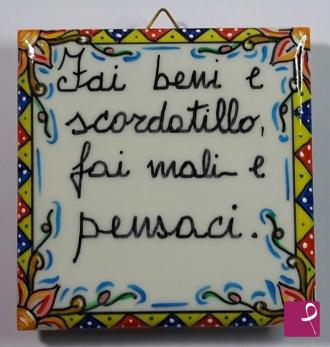 Fai beni e
scordatillo,
fai mali e
pensaci.